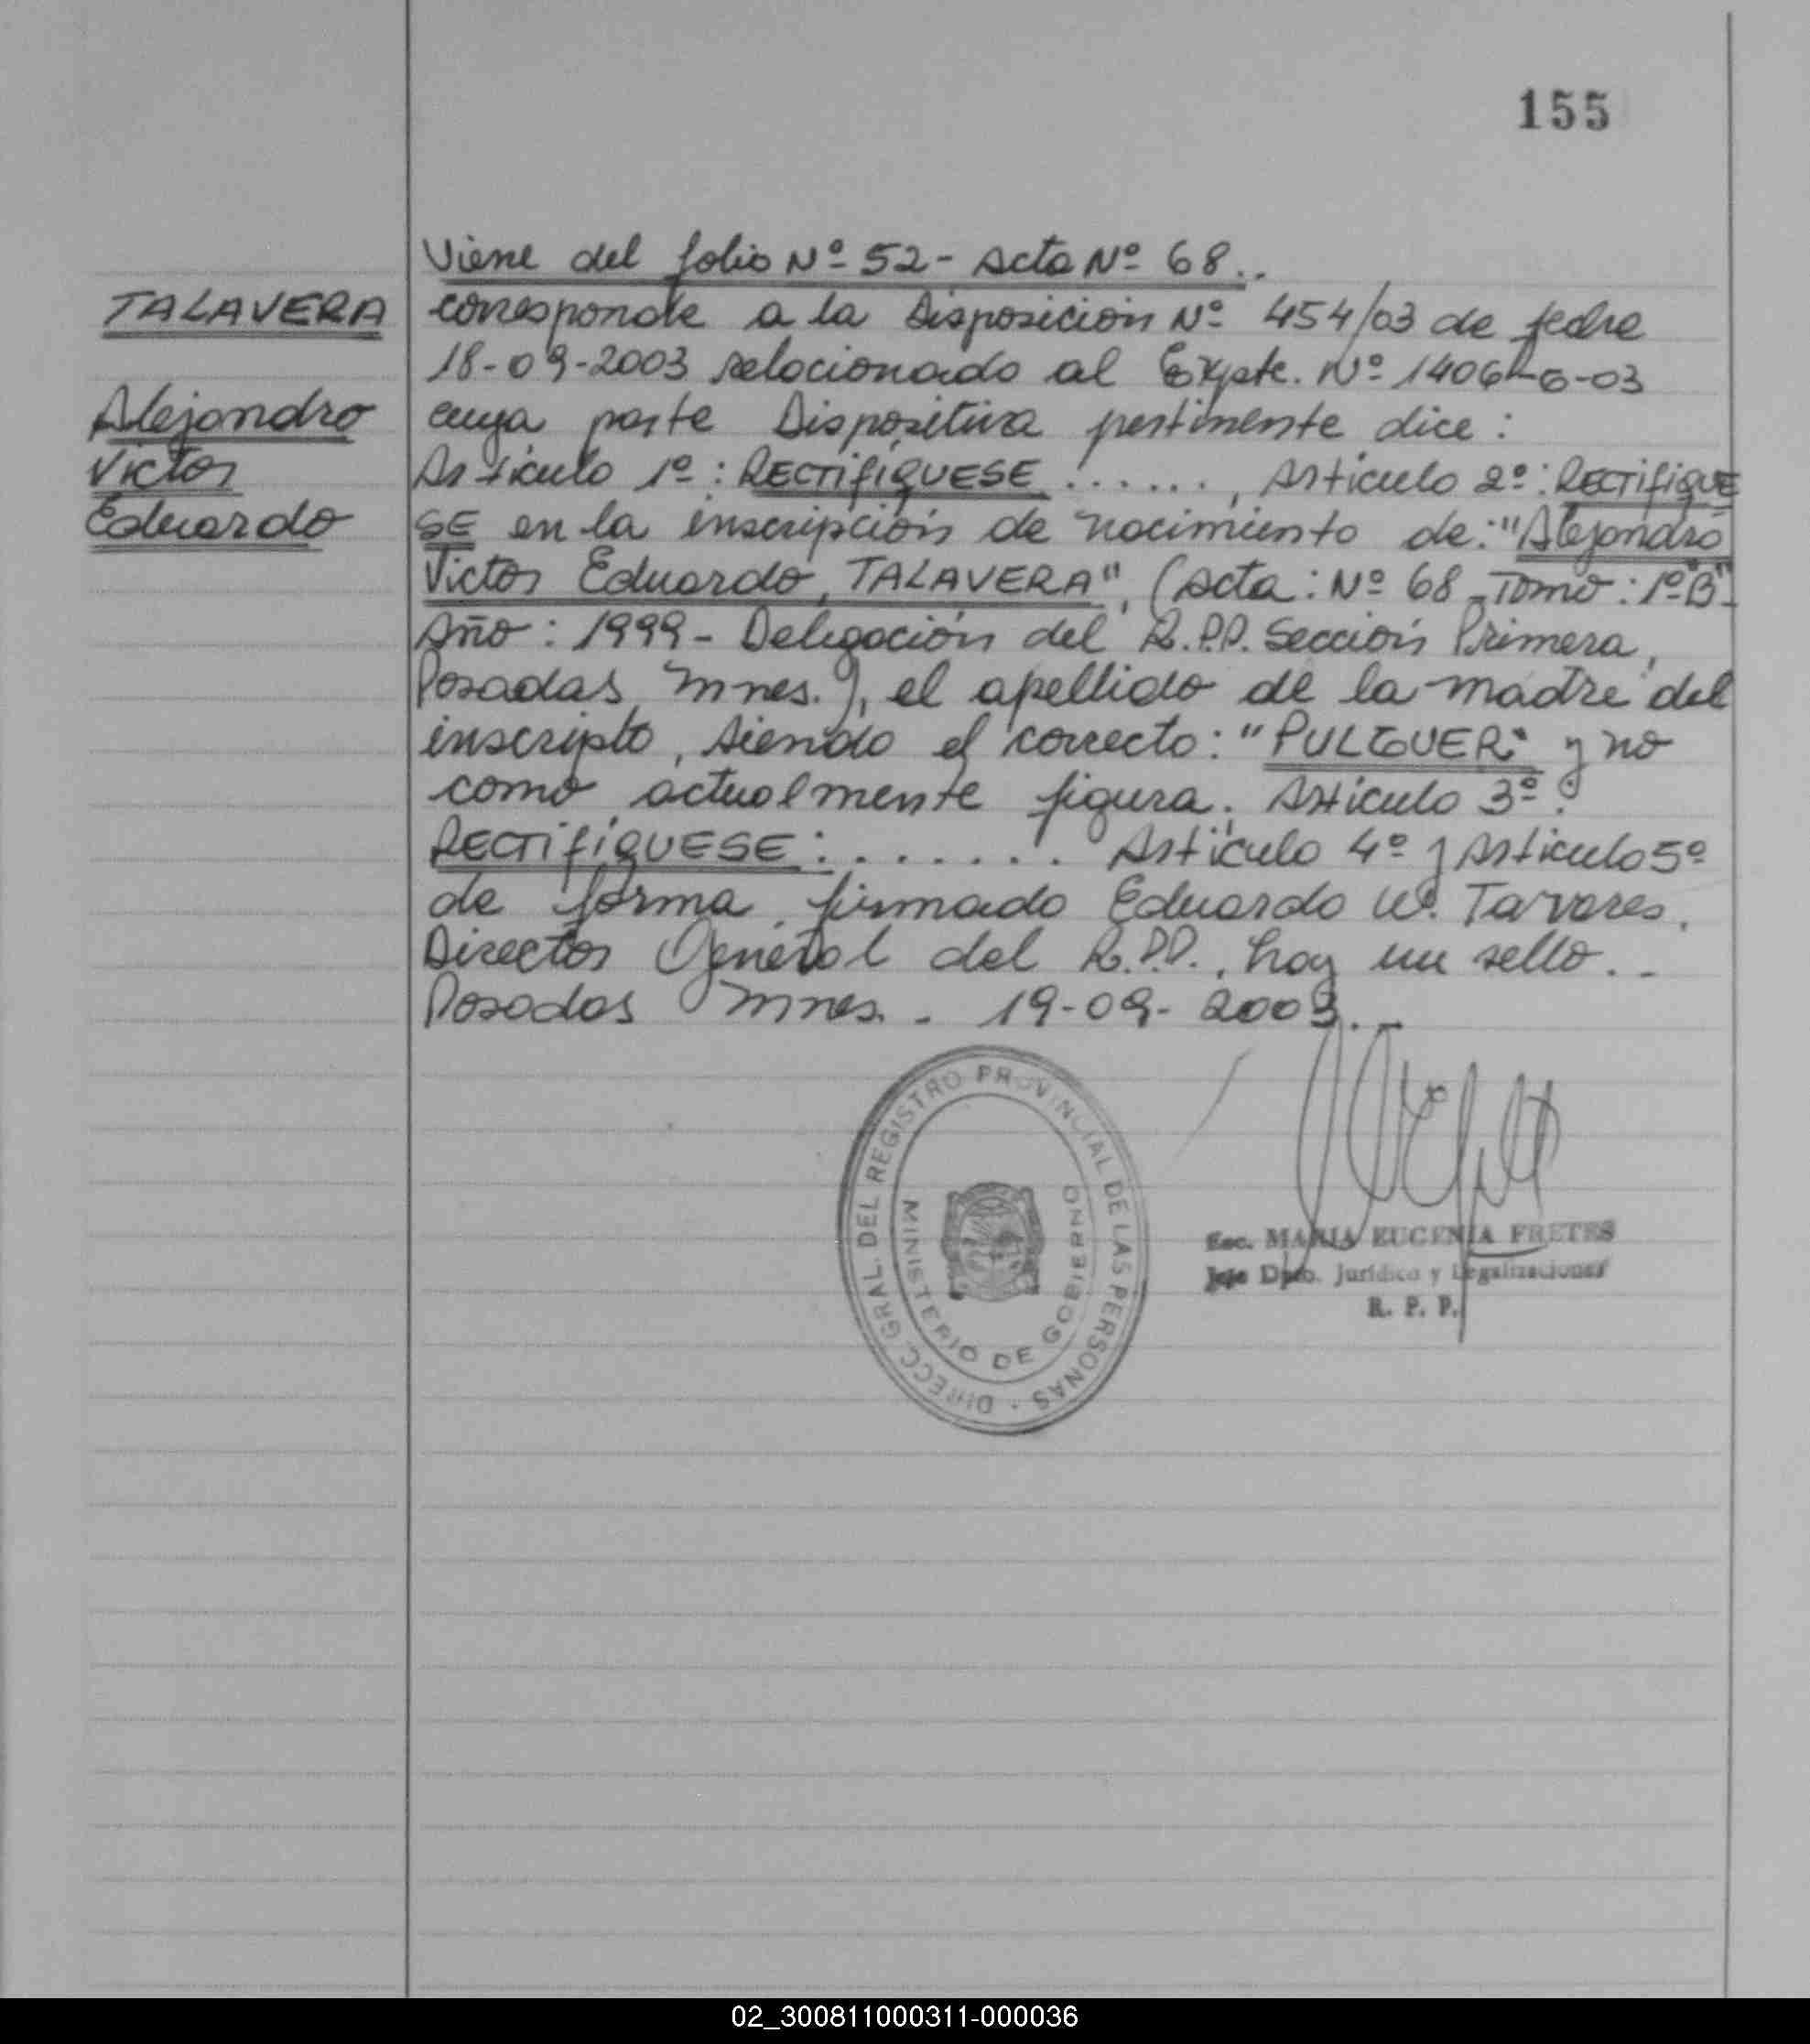 155
Viene del folio Nº 52 - Acta Nº 68..
TALAVERA
corresponde a la Disposición Nº 454/03 de fecha
18-09-2003 relacionado al Expte. Nº
Alejandro
cuya parte Dispositiva pertinente dice:
Victor
Artículo 1º: RECTIFIQUESE ......, Artículo 2º: RECTIFIQUE
Eduardo
SE en la inscripción de nacimiento de: "Alejandro
Victor Eduardo, TALAVERA", (Acta: Nº 68 - Tomo: 1º "B" -
Año: 1999 - Delegación del R.P.P. Sección Primera,
Posadas, Mnes.), el apellido de la madre del
inscripto, siendo el correcto: "PULGUER" y no
como actualmente figura. Artículo 3º:
RECTIFIQUESE: ....... Artículo 4º y Artículo 5º
de forma, firmado Eduardo W. Tavares.
Director General del R.P.P., hay un sello..-
Posadas Mnes. - 19-09-2003.-
DIRECC. GRAL. DEL REGISTRO PROVINCIAL DE LAS PERSONAS
MINISTERIO DE GOBIERNO
Esc. MARIA EUCENIA FRETES
Jefe Dpto. Jurídico y Legalizaciones
R. P. P.
02_300811000311-000036